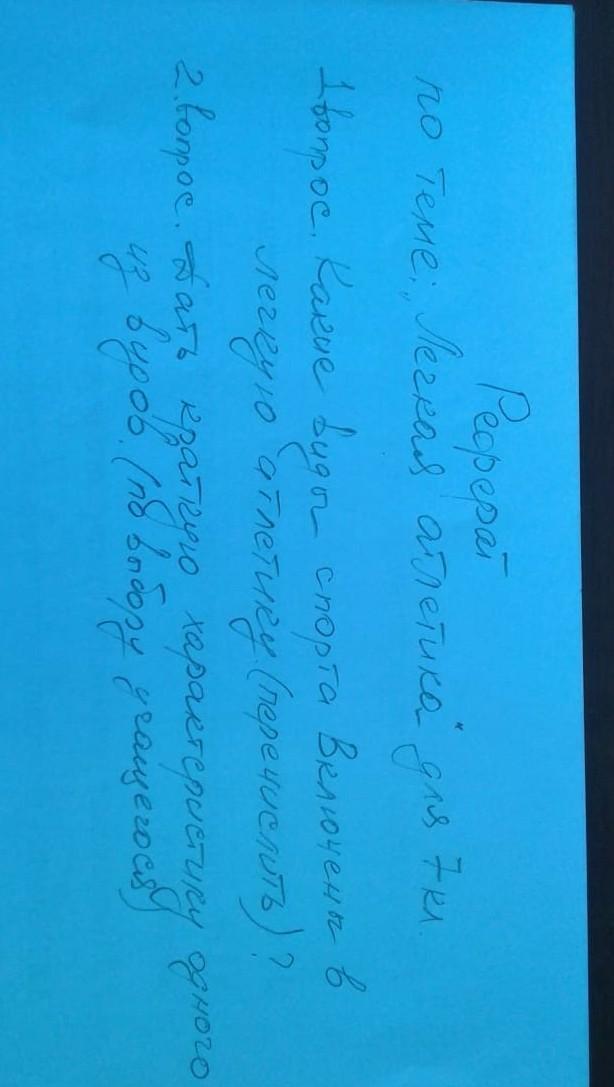 Реферат
по теме: "Легкая атлетика" для 7 кл.
1 вопрос. Какие виды спорта включены в
легкую атлетику. (перечислить)?
2. вопрос. Дать краткую характеристику одного
из видов. (по выбору учащегося)